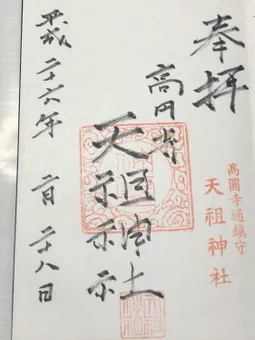 奉拝
高円寺
天祖神社
平成二十六年 二月 二十八日
高圓寺通鎮守
天祖神社